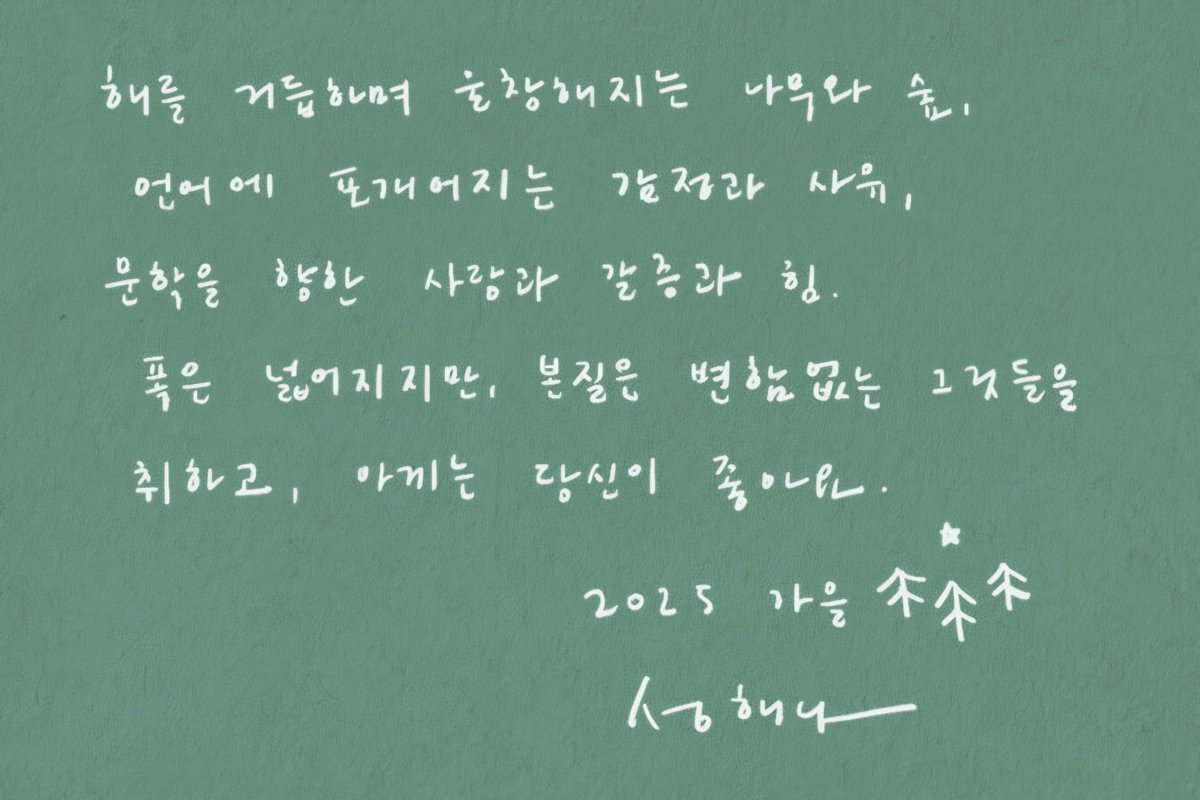 해를 거듭하며 울창해지는 나무와 숲,
언어에 포개어지는 감정과 사유,
문학을 향한 사랑과 갈증과 힘.
폭은 넓어지지만, 본질은 변함없는 그것들을
취하고, 아끼는 당신이 좋아요.
2025 가을
성해나